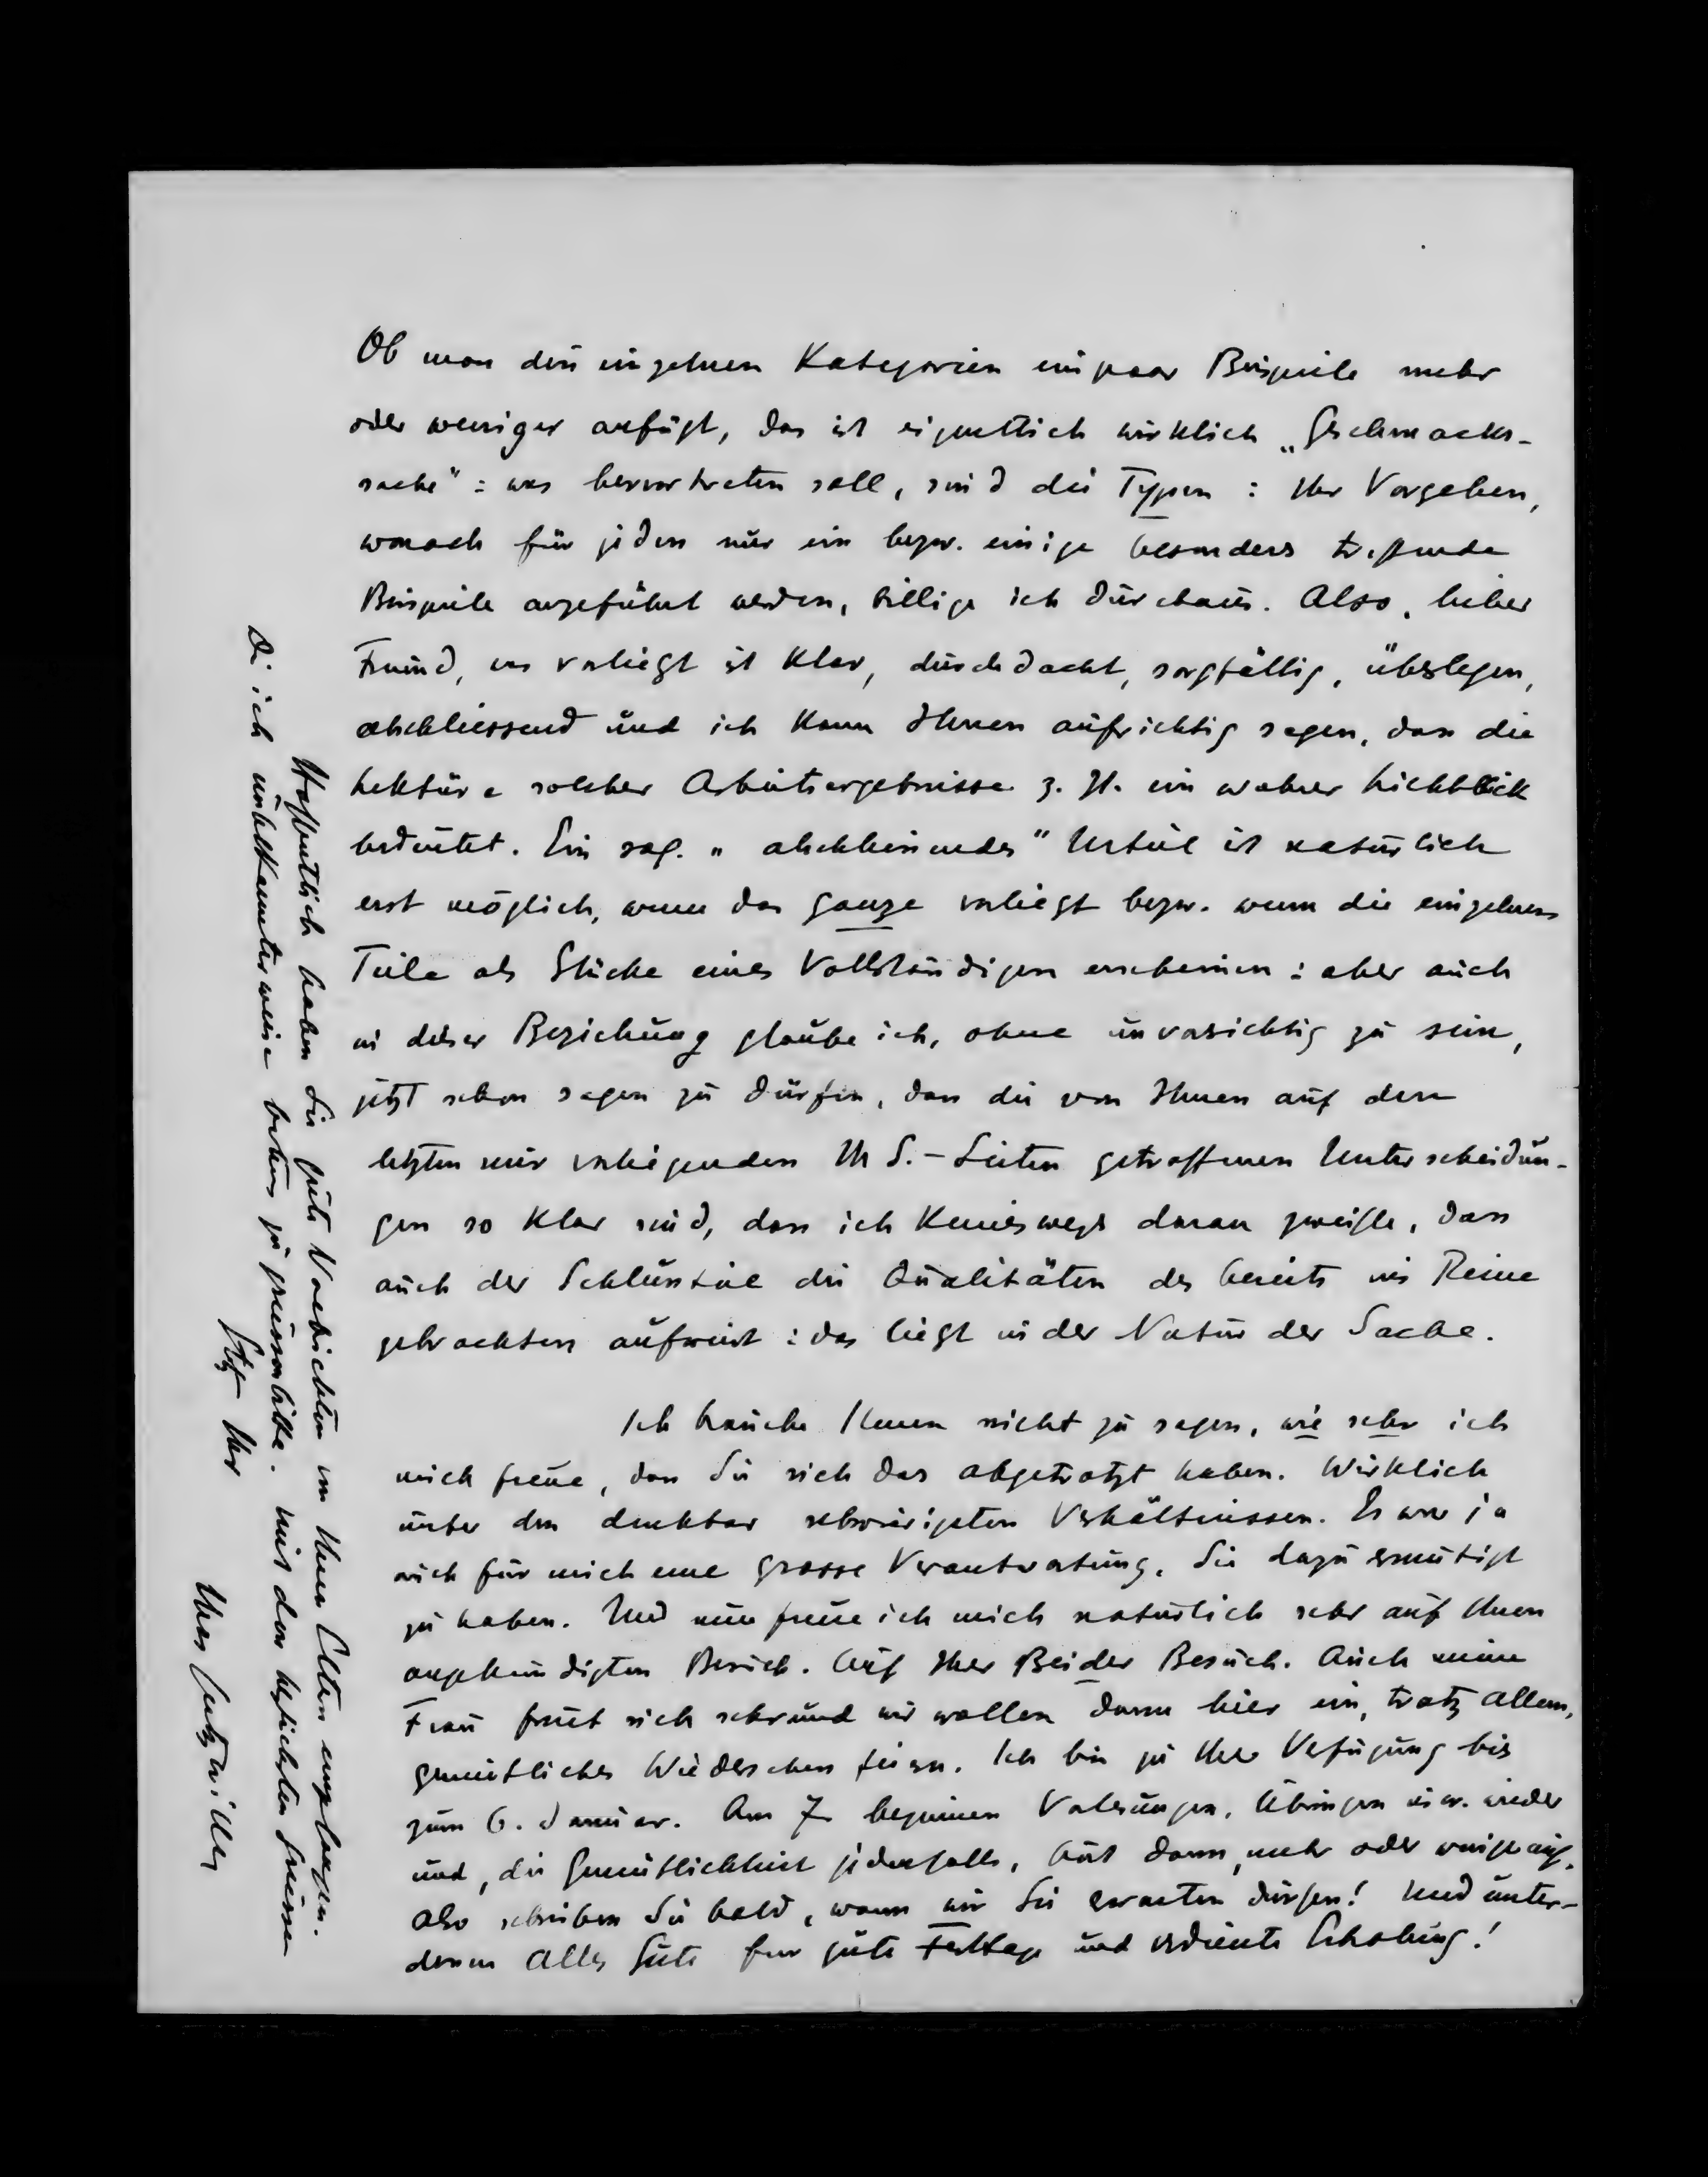 Ob man den einzelnen Kategorien ein paar Beispiele mehr
oder weniger anfügt, das ist eigentlich wirklich „Geschmacks-
sache": was hervortreten soll, sind die Typen: Ihr Vorgehen,
wonach für jeden nur ein bezw. einige besonders treffende
Beispiele angeführt werden, billige ich durchaus. Also, lieber
Freund, was vorliegt ist klar, durchdacht, sorgfältig, überlegen,
abschliessend und ich kann Ihnen aufrichtig sagen, dass die
Lektüre solcher Arbeitsergebnisse z. Zt. ein wahrer Lichtblick
bedeutet. Ein sog. „abschliessendes" Urteil ist natürlich
erst möglich, wenn das ganze vorliegt bezw. wenn die einzelnen
Teile als Stücke eines Vollständigen erscheinen: aber auch
in dieser Beziehung glaube ich, ohne unvorsichtig zu sein,
jetzt schon sagen zu dürfen, dass die von Ihnen auf den
letzten mir vorliegenden MS.-Seiten getroffenen Unterscheidun-
gen so klar sind, dass ich keineswegs daran zweifle, dass
auch der Schlussteil die Qualitäten des bereits ins Reine
gebrachten aufweist: das liegt in der Natur der Sache.
Ich brauche Ihnen nicht zu sagen, wie sehr ich
mich freue, dass Sie sich das abgetrotzt haben. Wirklich
unter den denkbar schwierigsten Verhältnissen. Es war ja
auch für mich eine grosse Verantwortung, Sie dazu ermutigt
zu haben. Und nun freue ich mich natürlich sehr auf Ihren
angekündigten Besuch. Auf Ihrer Beider Besuch. Auch meine
Frau freut sich sehr und wir wollen dann hier ein, trotz allem,
gemütliches Wiedersehen feiern. Ich bin zu Ihrer Verfügung bis
zum 6. Januar. Am 7. beginnen Vorlesungen, Übungen usw. wieder
und, die Gemütlichkeit jedenfalls, hört dann, mehr oder weniger auf.
Also schreiben Sie bald, wann wir Sie erwarten dürfen! Und unter-
dessen Alles Gute für gute Festtage und verdiente Erholung!
Hoffentlich haben Sie gute Nachrichten von Ihren Eltern empfangen.
Die ich unbekannterweise bestens zu grüssen bitte. Mit den herzlichsten Grüssen
stets Ihr